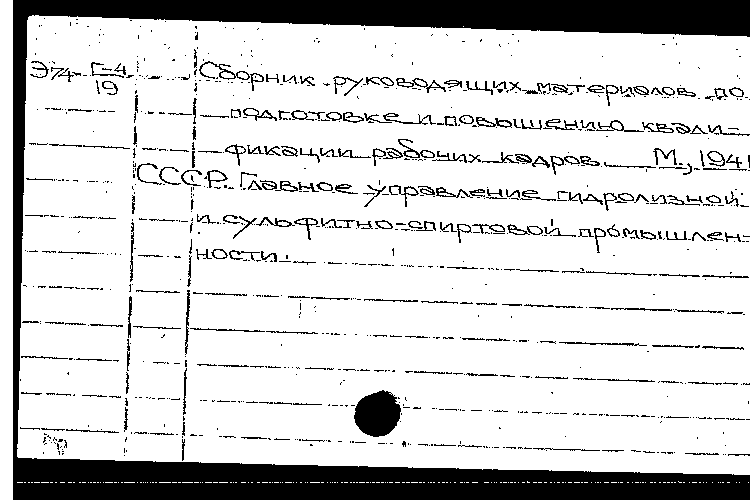 Э74 Г-4/19 Сборник руководящих материалов по
подготовке и повышению квали-
фикации рабочих кадров. М., 1941
СССР. Главное управление гидролизной
и сульфитно-спиртовой промышлен-
ности.